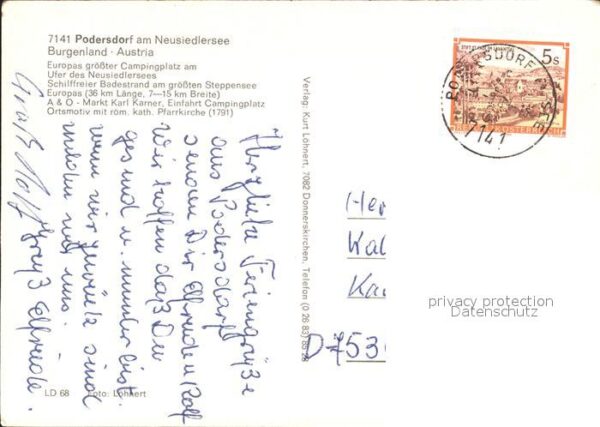 7141 Podersdorf am Neusiedlersee
Burgenland · Austria
Europas größter Campingplatz am
Ufer des Neusiedlersees
Schilffreier Badestrand am größten Steppensee
Europas (36 km Länge, 7—15 km Breite)
A & O - Markt Karl Karner, Einfahrt Campingplatz
Ortsmotiv mit röm. kath. Pfarrkirche (1791)
Herzliche Feriengrüße
aus Podersdorf
senden Dir Elfriede u Rolf
Wir hoffen daß Du
gesund u. munter bist.
wenn wir zurück sind
melden wir uns.
Gruß Elfriede.
Gruß Rolf
LD 68 Foto: Löhnert
Verlag: Kurt Löhnert, 7082 Donnerskirchen, Telefon (0 26 83) 85
5s
PODERSDORF
7141
Her
Kal
Ka
D-753
privacy protection
Datenschutz